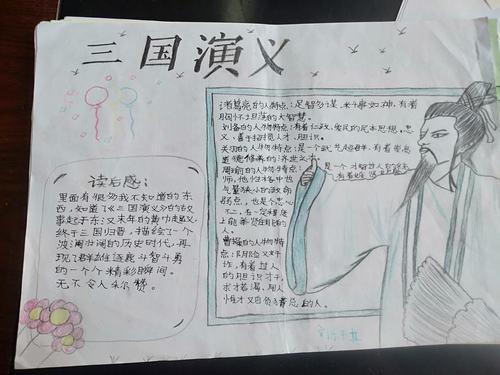 三国演义
诸葛亮的人物特点：足智多谋、料事如神，有着
胸怀坦荡的大智慧。
刘备的人物特点：有着仁政、爱民的民本思想，忠
义、善于招揽人才、胆识。
关羽的人物特点：是一个武艺超群、有着崇高
道德修养的
周瑜的人物特点：
师，他
气量狭小的致命
弱点，也是个忠心
不二，在一定程度
上能
的人。
曹操的人物特
点：
诈，有着过人
的胆识才干，
求才若渴、用人
惟才又自负
的人。
读后感：
里面有很多我不知道的东
西，知道了《三国演义》的故
事起于东汉末年的黄巾起义，
终于三国归晋，描绘了一个
波澜壮阔的历史时代，再
现了群雄逐鹿斗智斗勇
的一个个精彩瞬间。
无不令人称赞。